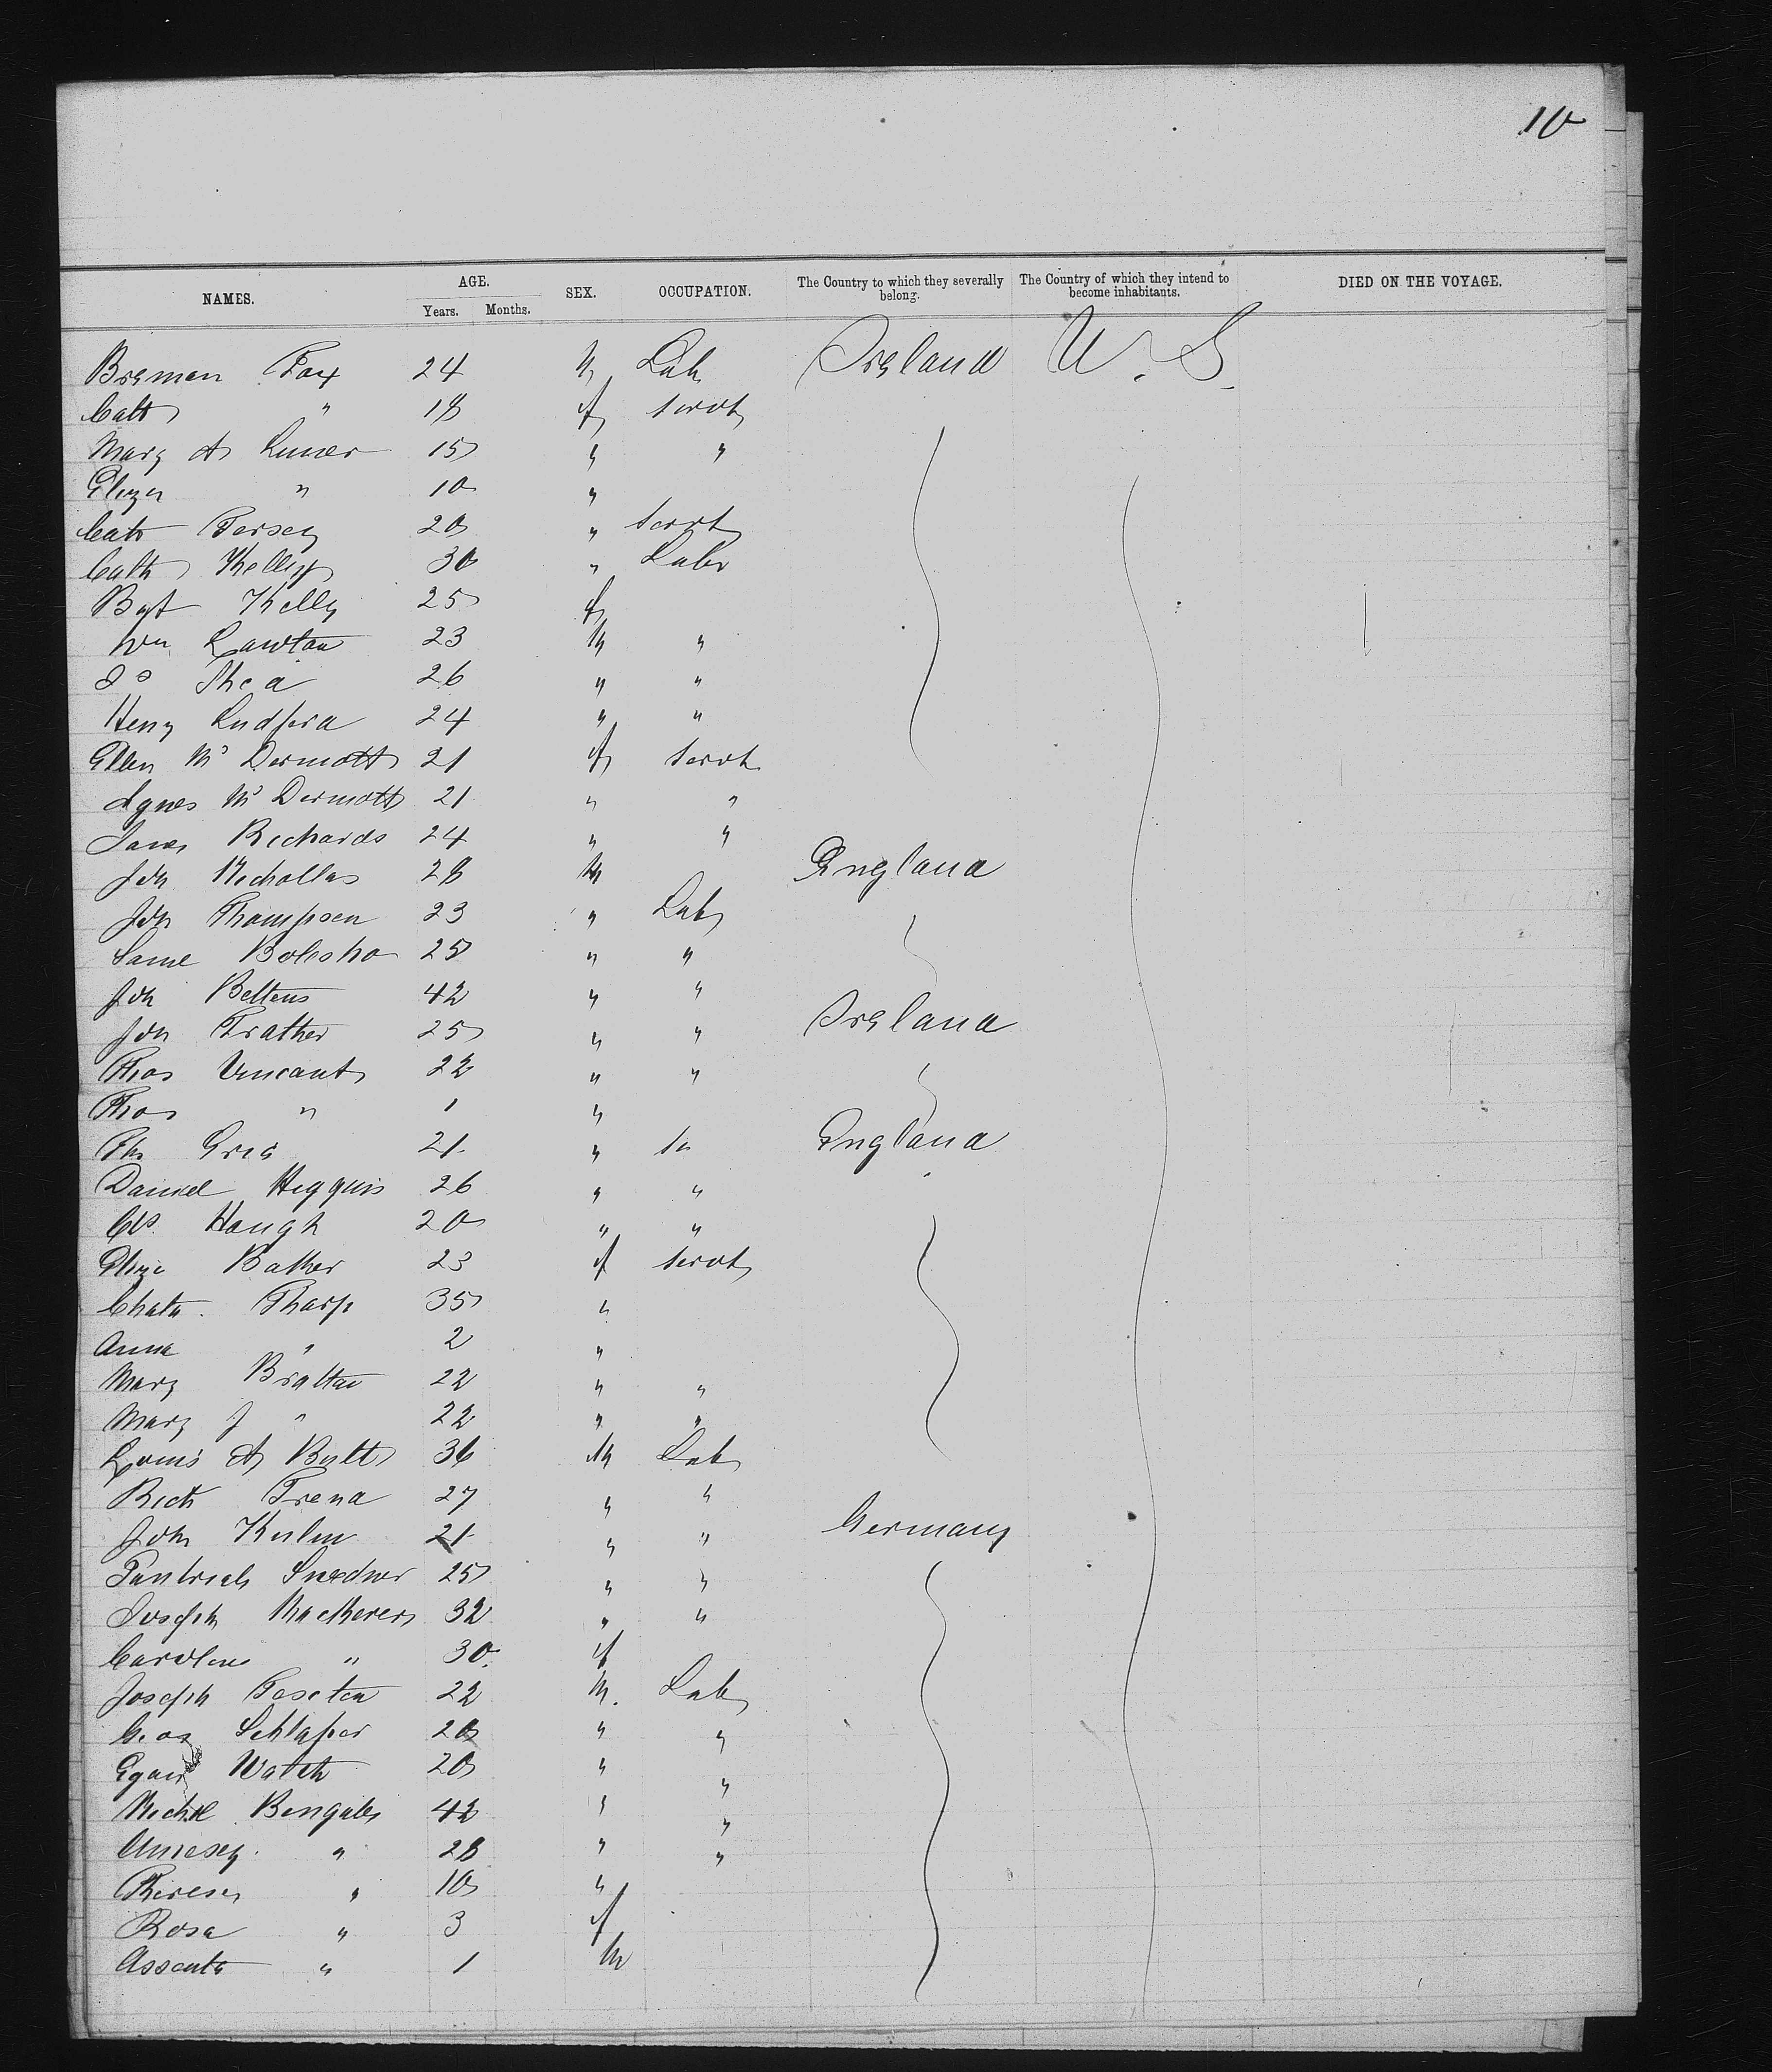 10
NAMES. AGE. Years. Months. SEX. OCCUPATION. The Country to which they severally belong. The Country of which they intend to become inhabitants. DIED ON THE VOYAGE.
Fox 24 M Lab Ireland U.S.
Cath " 18 f Servt
Mary A 15 " "
Eliza " 10 "
Cath 20 " Servt
Cath Kelly 30 " Labr
Bgt Kelly 25 f
Wm Lawton 23 M "
Jo Shea 26 " "
Heny Ludford 24 " "
Ellen Mc Dermott 21 f Servt
Agnes Mc Dermott 21 " "
Jane Richards 24 " "
Joh Nichollas 28 M England
Joh Thompson 23 " Lab
Saml 25 " "
Joh Bettens 42 " "
Joh Prather 25 " " Ireland
Thos Vincant 22 " "
Thos " 1 "
21 " England
Daniel Higguis 26 " "
Haugh 20 " "
Eliza Bather 23 f Servt
Tharp 35 "
Anna " 2 "
Mary Brattan 22 " "
Mary J " 22 " "
Louis A Butt 36 M Lab
Rich Frena 27 " "
John 21 " " Germany
25 " "
Joseph 32 " "
Caroline " 30 f
Joseph 22 M. Lab
Geo Schlafer 20 " "
20 " "
Michl Bengales 42 " "
" 28 " "
Theresa " 10 "
Rosa " 3 f
Assenta " 1 M